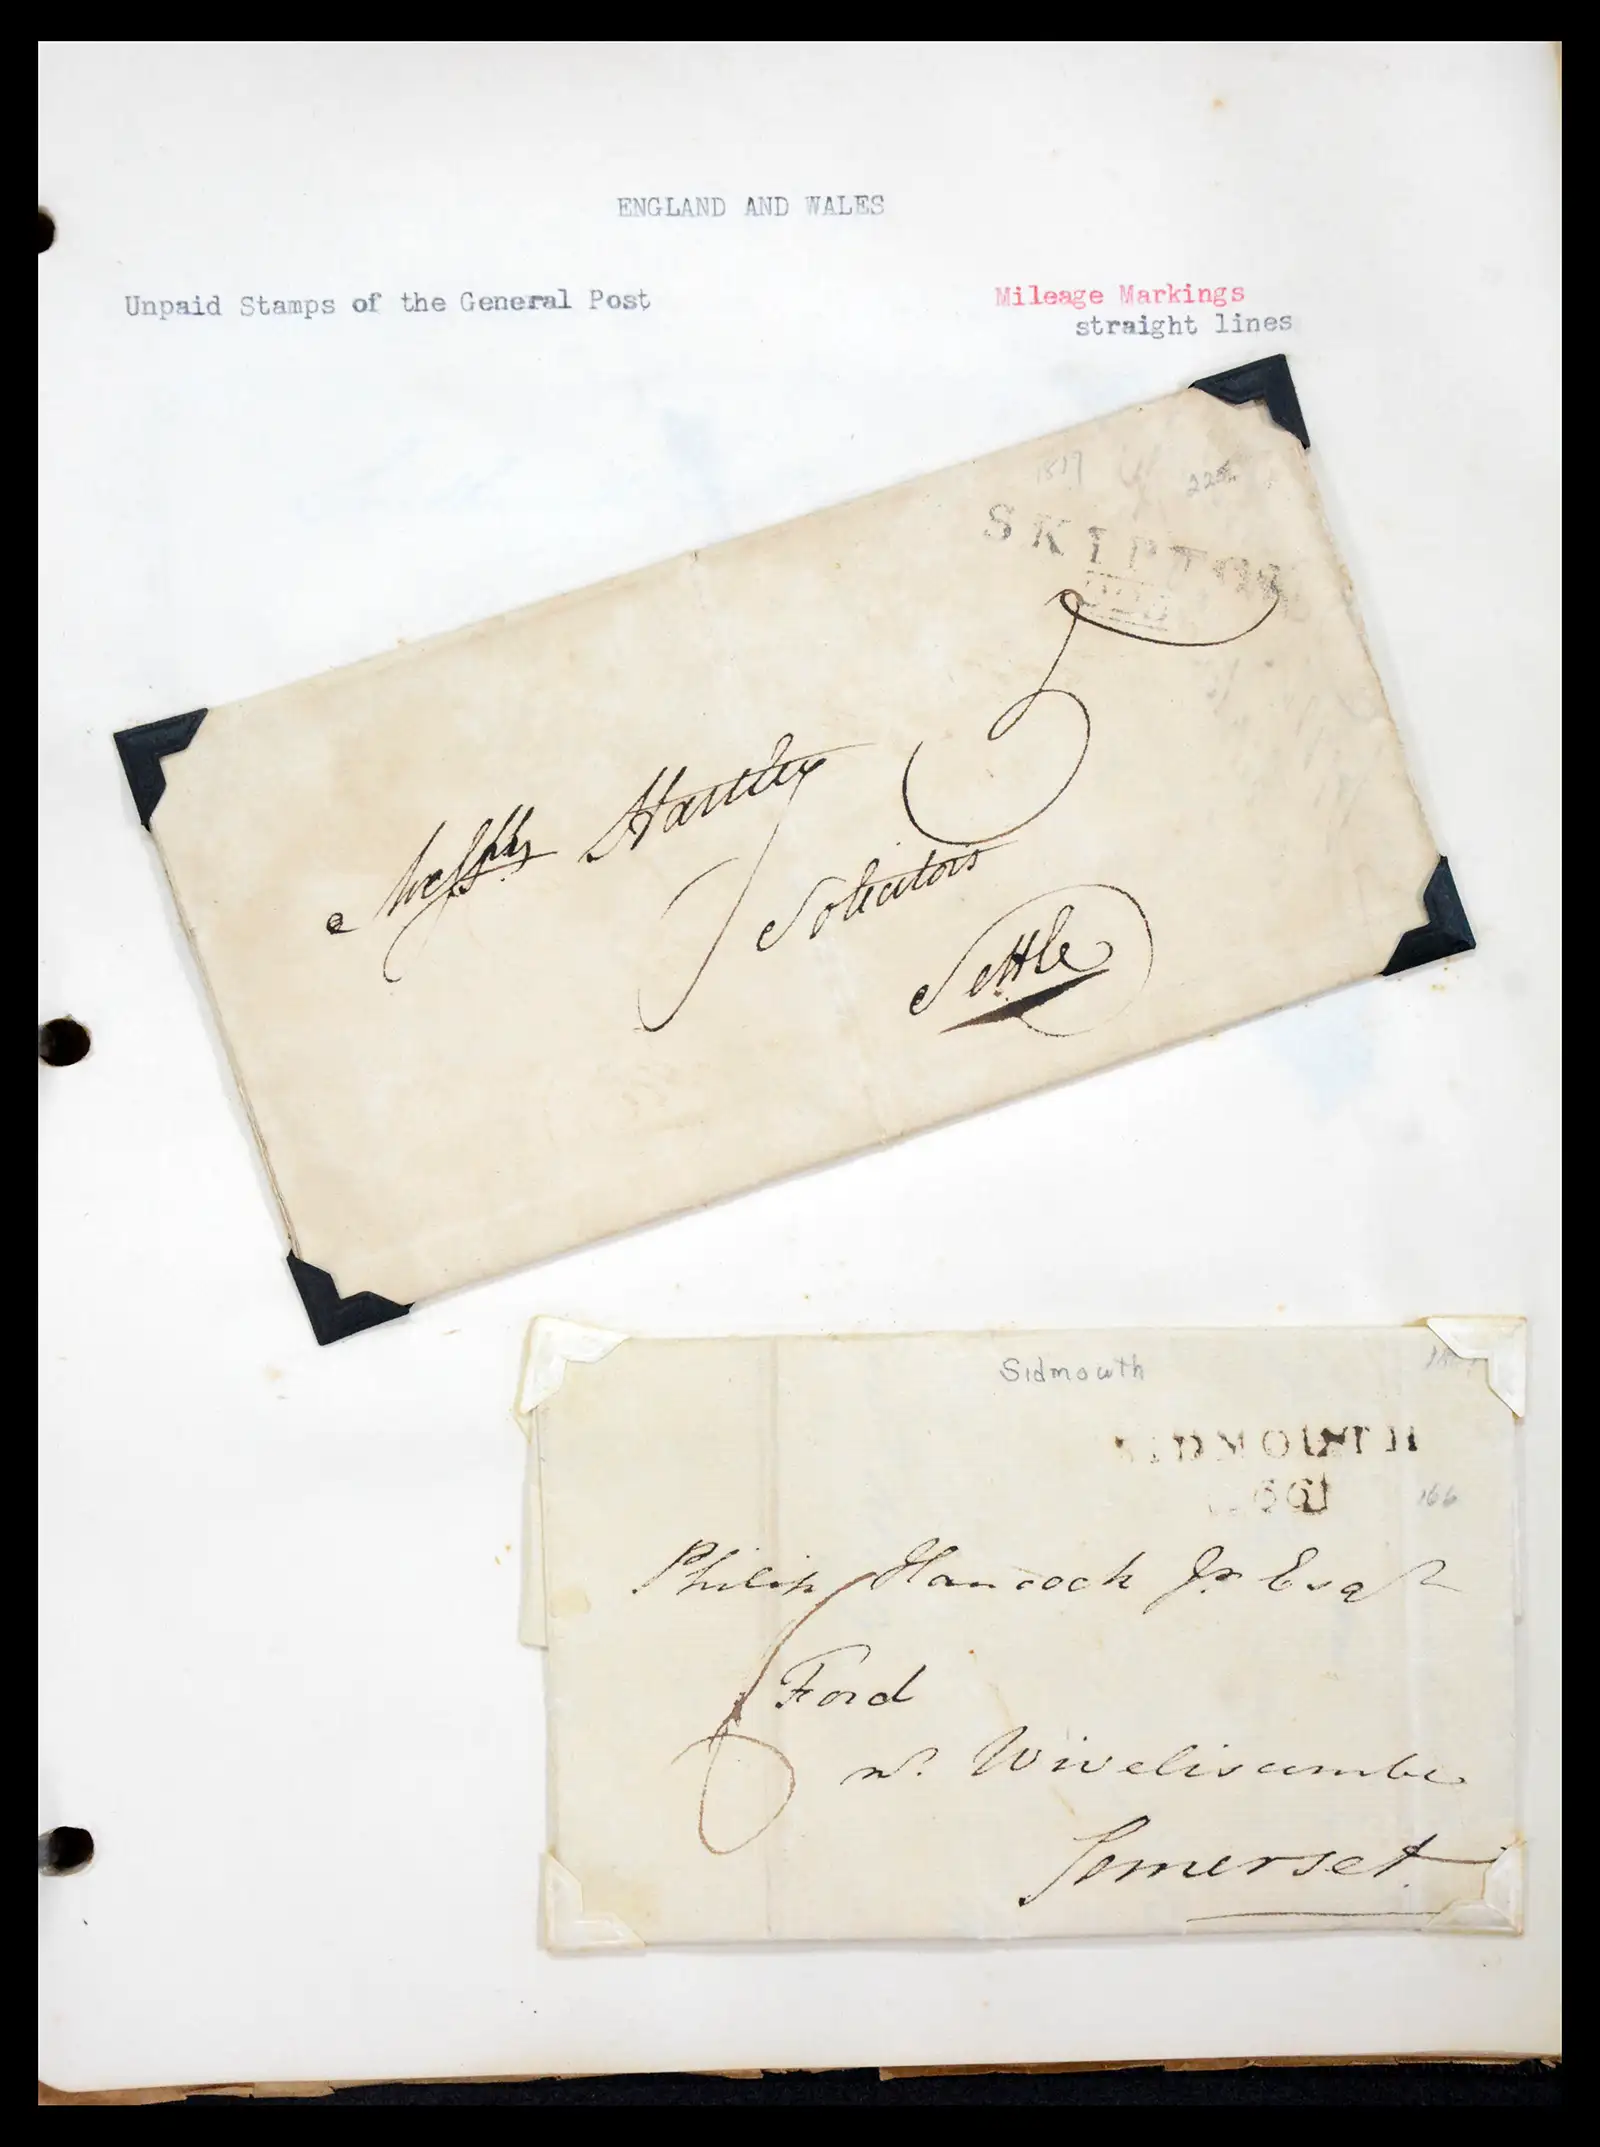 ENGLAND AND WALES
Unpaid Stamps of the General Post
Mileage Markings
straight lines
SKIPTON
Messrs Hartley
Solicitors
Settle
Sidmouth
SIDMOUTH
166
166
Philip Hancock Jr Esqr
6
Ford
nr. Wiveliscombe
Somerset